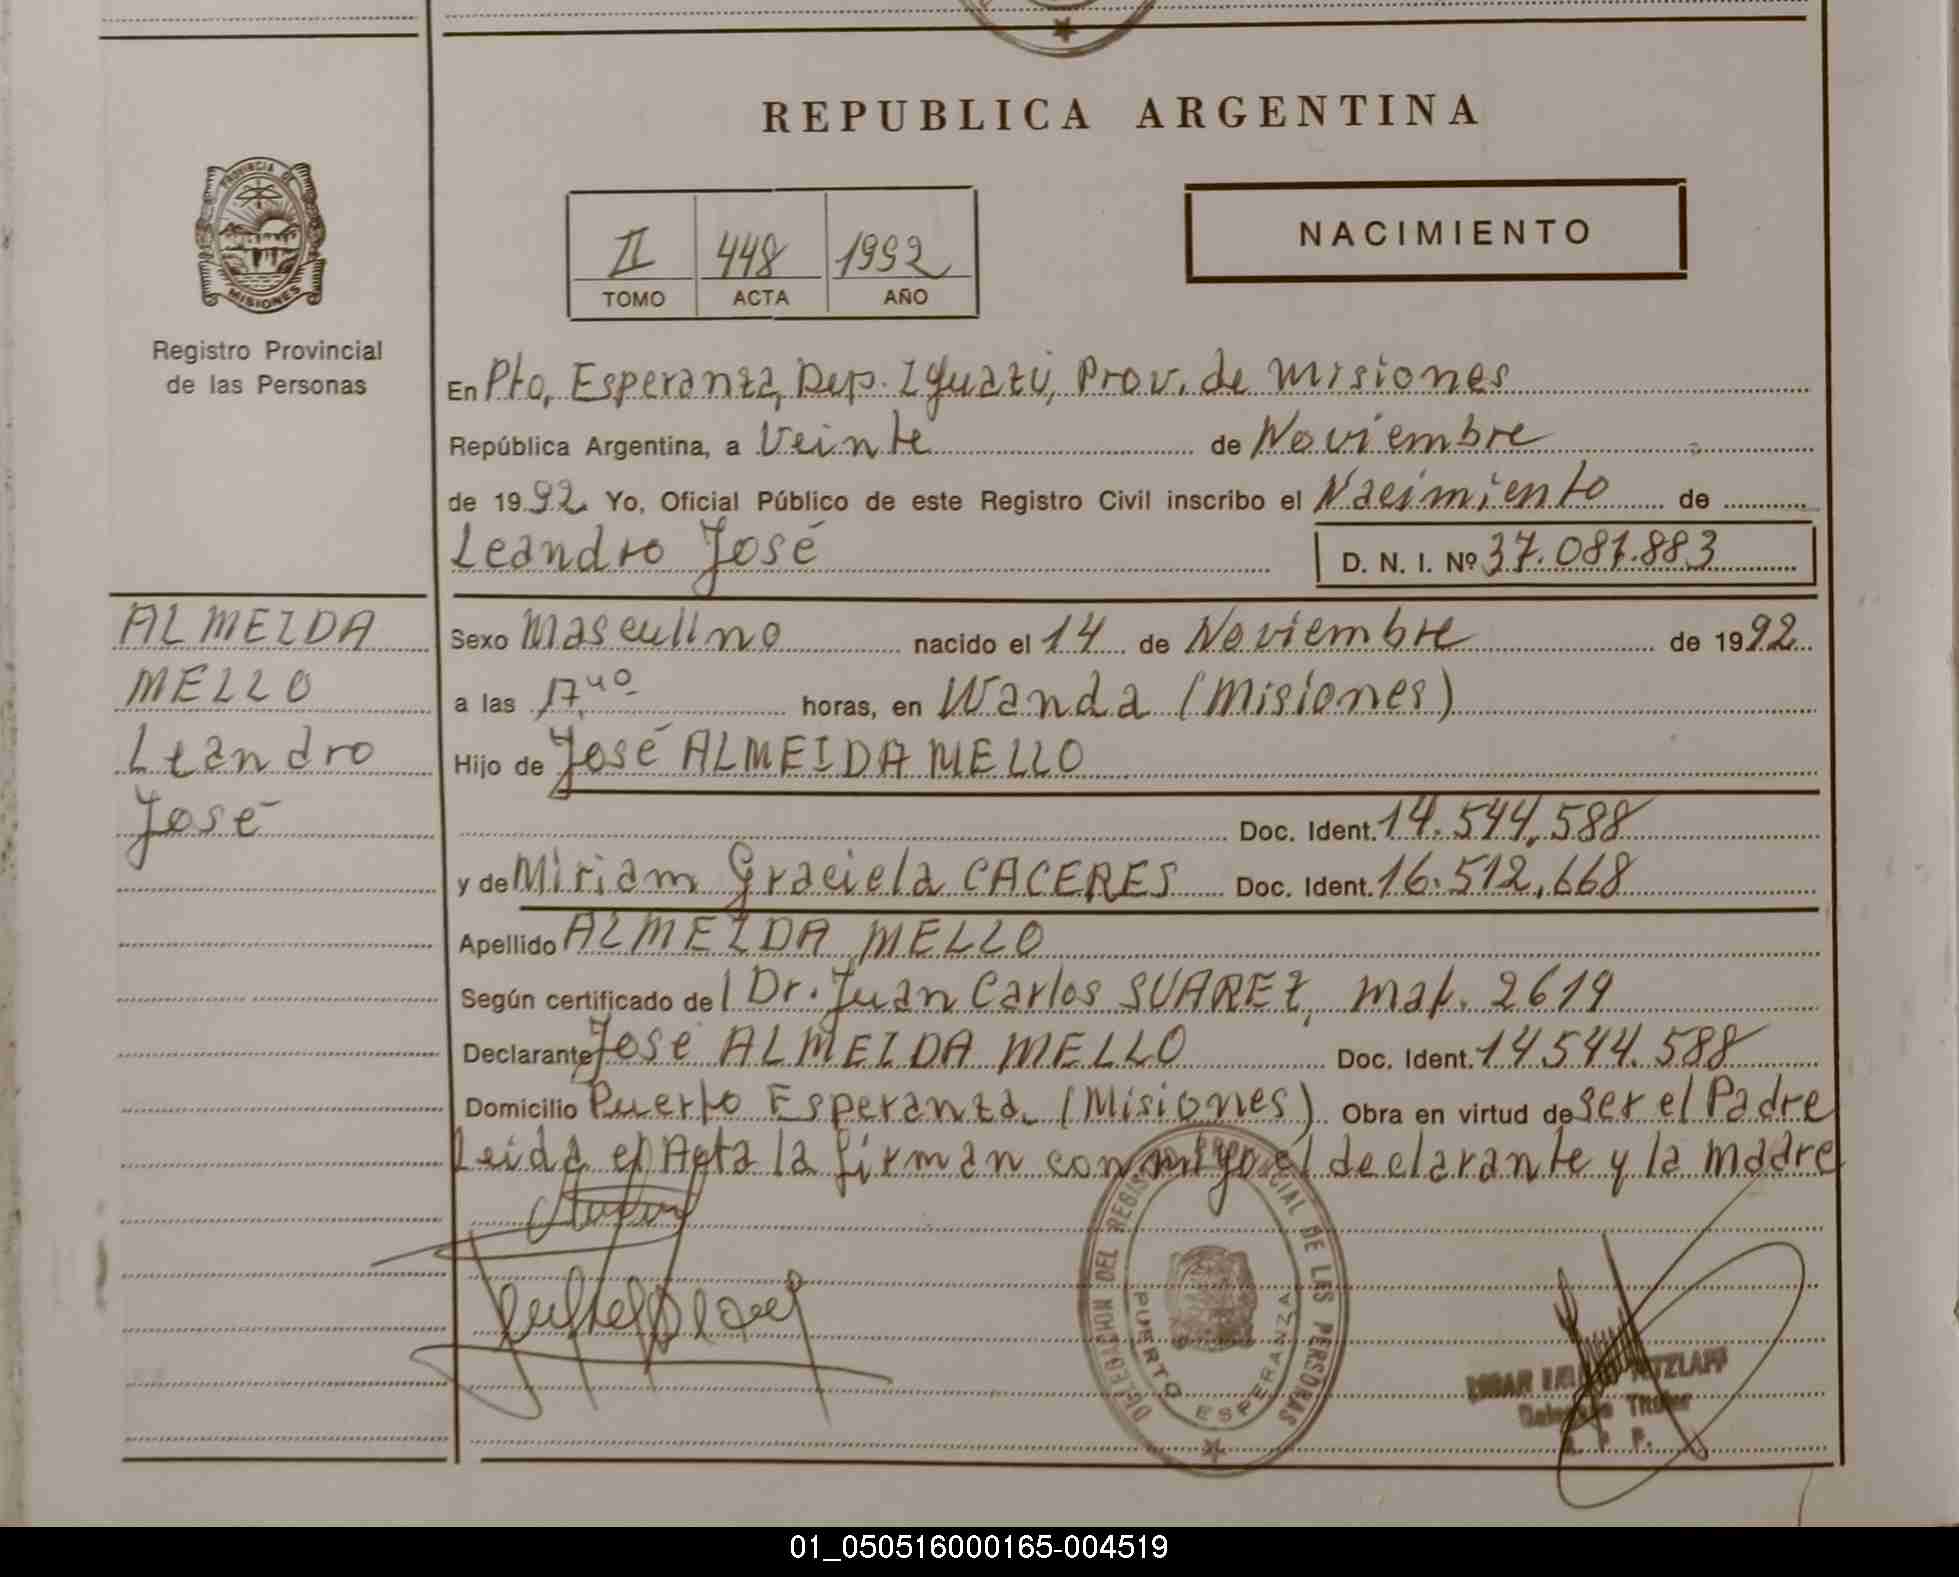 REPUBLICA ARGENTINA
PROVINCIA DE
MISIONES
Registro Provincial
de las Personas
II 448 1992
TOMO ACTA AÑO
NACIMIENTO
En Pto, Esperanza, Dep. Iguazú, Prov. de Misiones
República Argentina, a Veinte de Noviembre
de 1992 Yo, Oficial Público de este Registro Civil inscribo el Nacimiento de
Leandro José
D. N. I. Nº 37.087.883
ALMEIDA
MELLO
Leandro
José
Sexo Masculino nacido el 14 de Noviembre de 1992
a las 17,40 horas, en Wanda (Misiones)
Hijo de José ALMEIDA MELLO
Doc. Ident. 14.544.588
y de Miriam Graciela CACERES Doc. Ident. 16.512.668
Apellido ALMEIDA MELLO
Según certificado del Dr. Juan Carlos SUAREZ, mat. 2619
Declarante José ALMEIDA MELLO Doc. Ident. 14544.588
Domicilio Puerto Esperanza (Misiones) Obra en virtud de ser el Padre
Leida el Acta la firman conmigo el declarante y la madre
DELEGACION DEL REGISTRO PROVINCIAL DE LAS PERSONAS
PUERTO ESPERANZA
Titular
01_050516000165-004519